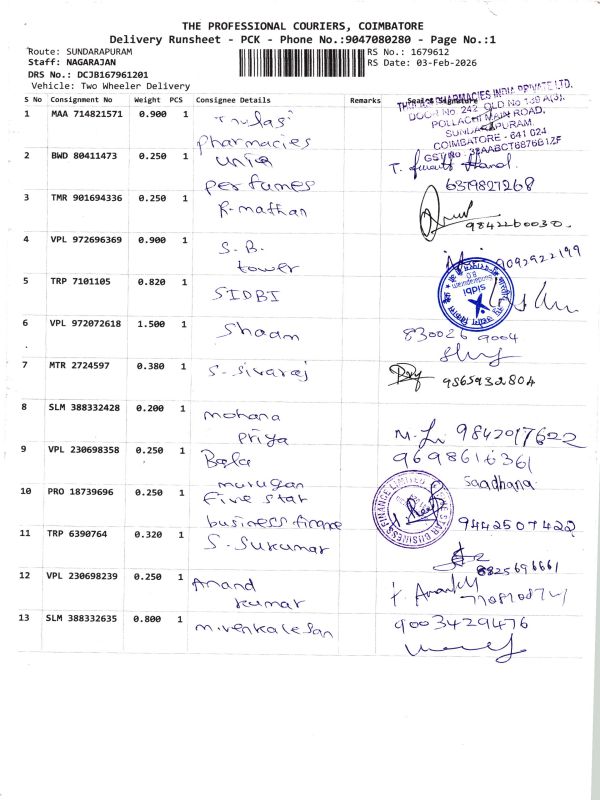 THE PROFESSIONAL COURIERS, COIMBATORE
Delivery Runsheet - PCK - Phone No.:9047080280 - Page No.:1
Route: SUNDARAPURAM
RS No.: 1679612
Staff: NAGARAJAN
RS Date: 03-Feb-2026
DRS No.: DCJB167961201
Vehicle: Two Wheeler Delivery
S No Consignment No Weight PCS Consignee Details Remarks Seal & Signature
THULASI PHARMACIES INDIA PRIVATE LTD.
DOOR No. 242, OLD No 139 A(3),
POLLACHI MAIN ROAD,
SUNDARAPURAM,
COIMBATORE - 641 024
GST No : 33AABCT6876B1ZF
1 MAA 714821571 0.900 1 Thulasi
pharmacies
2 BWD 80411473 0.250 1 uniq
perfumes
6379827268
3 TMR 901694336 0.250 1 R. mathan
9842260030
4 VPL 972696369 0.900 1 S.B.
tower
9092922199
5 TRP 7101105 0.820 1 SIDBI
sidbi
6 VPL 972072618 1.500 1 Shaam
830026 9004
7 MTR 2724597 0.380 1 S. Sivaraj
9565932804
8 SLM 388332428 0.200 1 mohana
priya
9842017622
9 VPL 230698358 0.250 1 Bala
murugan
9698616361
Saadhana
10 PRO 18739696 0.250 1 Five star
business finance
FIVE STAR BUSINESS FINANCE LIMITED
9442507422
11 TRP 6390764 0.320 1 S. Sukumar
8825696661
12 VPL 230698239 0.250 1 Anand
kumar
13 SLM 388332635 0.800 1 m. venkalesan
9003429476